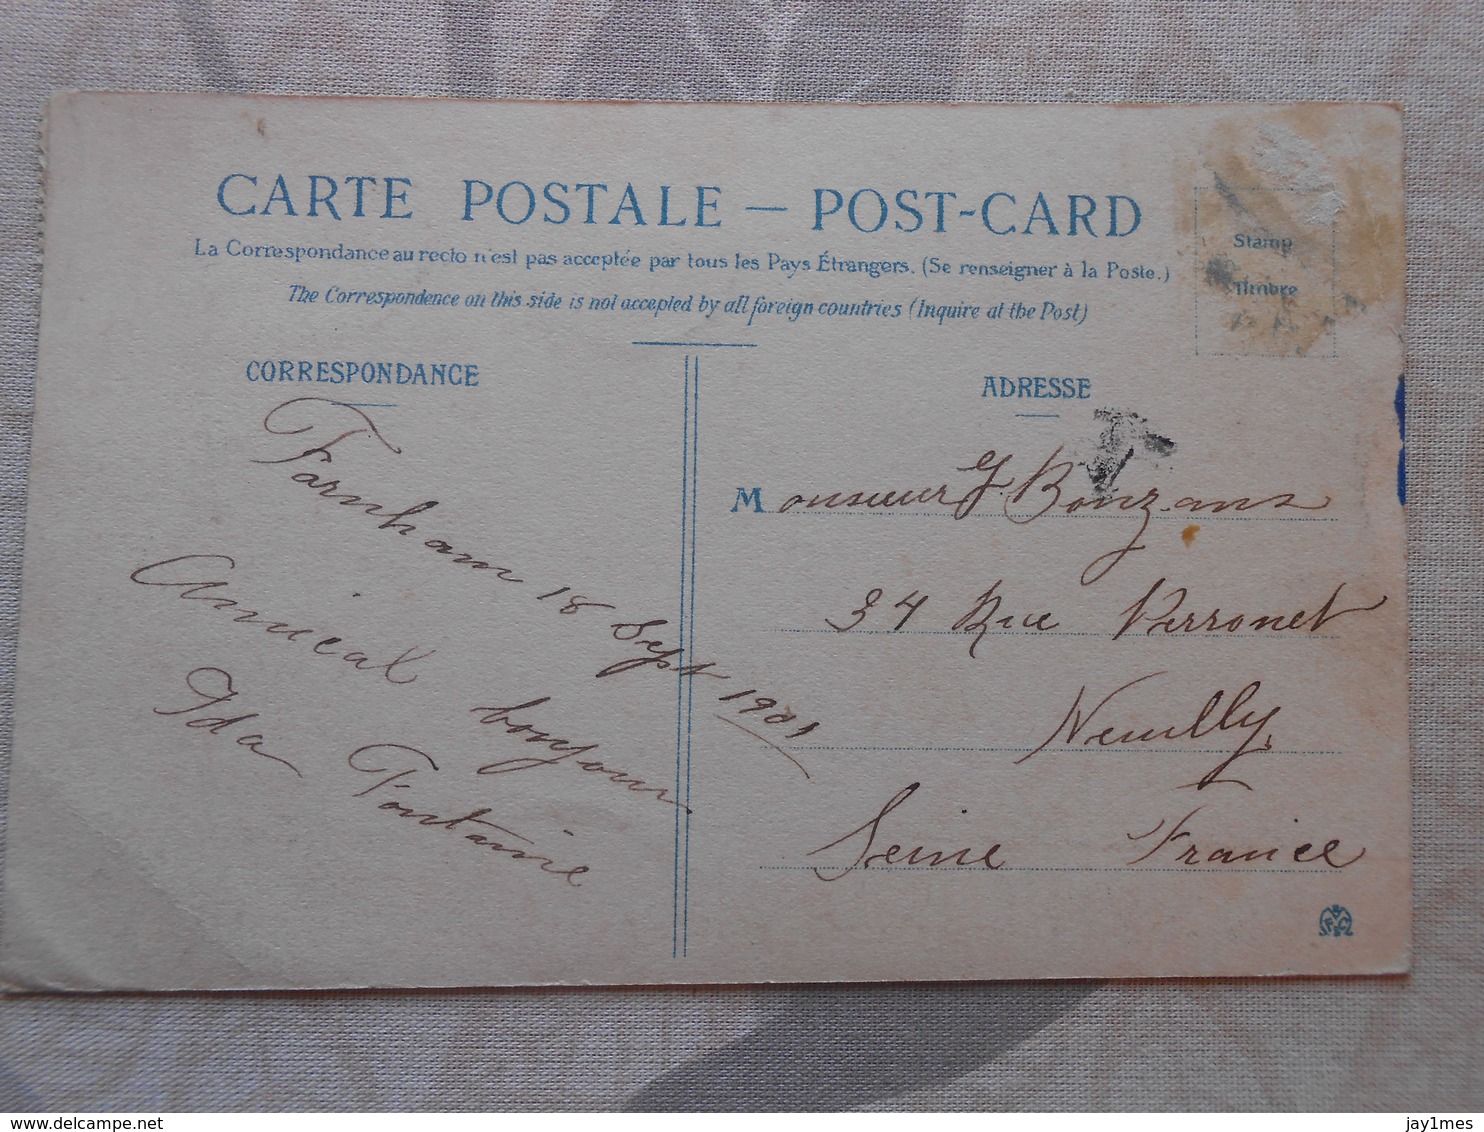 CARTE POSTALE — POST-CARD
La Correspondance au recto n'est pas acceptée par tous les Pays Étrangers. (Se renseigner à la Poste.)
The Correspondence on this side is not accepted by all foreign countries (Inquire at the Post)
Stamp
Timbre
CORRESPONDANCE
Farnham 18 Sept
Amical bonjour
Ida Fontaine
ADRESSE
Monsieur J. Bonzans
34 Rue Perronet
Neuilly
Seine France
jay1mes